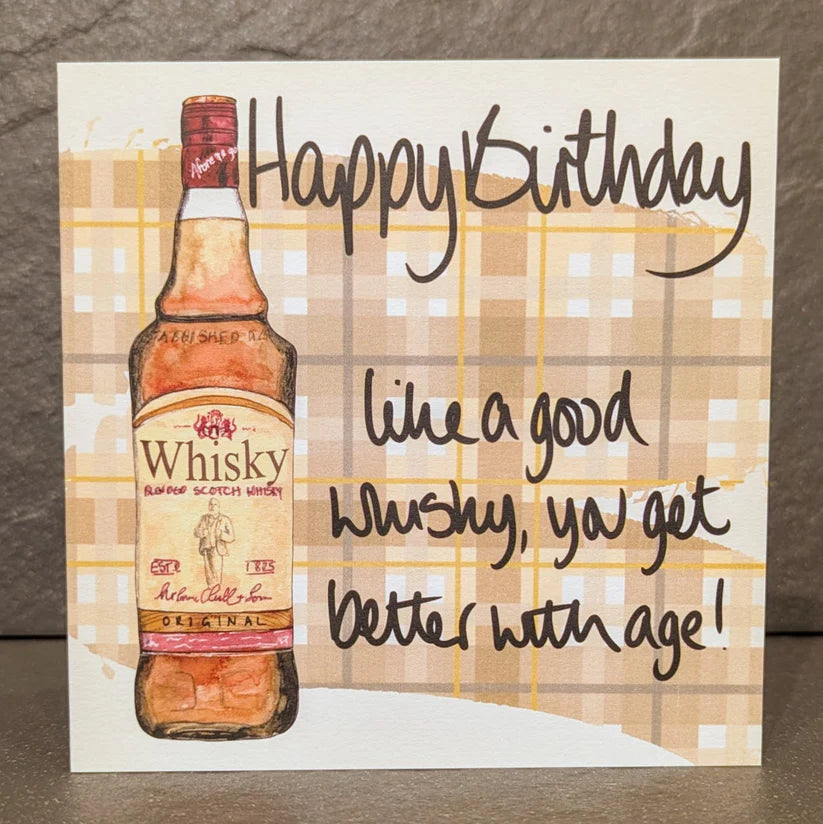 Happy Birthday
like a good
whisky, you get
better with age!
Whisky
BLENDED SCOTCH WHISKY
ESTD 1825
ORIGINAL